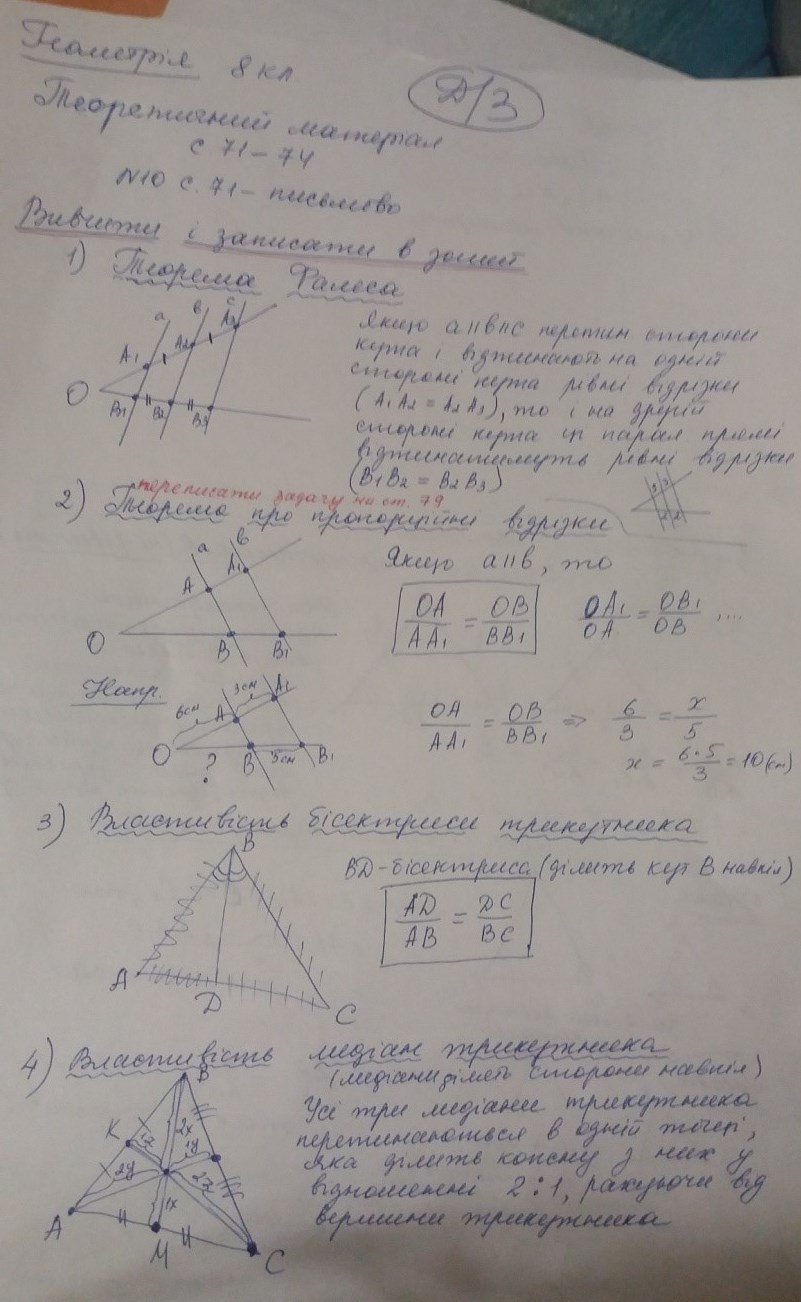 Геометрія 8 кл
Д/З
Теоретичний матеріал
с 71 – 74
N10 с. 71 – письмово
Вивчити і записати в зошит
1) Теорема Фалеса
a b c
A1 A2 A3
O B1 B2 B3
Якщо a || b || c перетин сторони
кута і відтинають на одній
стороні кута рівні відрізки
(A1A2 = A2A3), то і на другій
стороні кута ці парал прямі
відтинатимуть рівні відрізки
(B1B2 = B2B3)
переписати задачу на ст. 79
2) Теорема про пропорційні відрізки
a b
A A1
O B B1
Якщо a || b, то
OA/AA1 = OB/BB1 OA1/OA = OB1/OB , ...
Напр.
6см 3см A1
A
O ? B 5см B1
OA/AA1 = OB/BB1 => 6/3 = x/5
x = 6·5/3 = 10 (см)
3) Властивість бісектриси трикутника
B
A D C
BD - бісектриса (ділить кут B навпіл)
AD/AB = DC/BC
4) Властивість медіан трикутника
(медіани ділять сторони навпіл)
Усі три медіани трикутника
перетинаються в одній точці,
яка ділить кожну з них у
відношенні 2:1, рахуючи від
вершини трикутника
B
K 1z 2x 1y
2y 2z
A 1x
M C